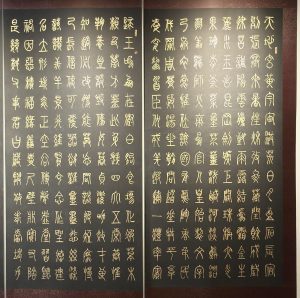 天地玄黃宇宙洪荒日月盈昃辰宿
列張寒來暑往秋收冬藏閏餘成歲
律呂調陽雲騰致雨露結為霜金生
麗水玉出崑岡劍號巨闕珠稱夜光
果珍李柰菜重芥薑海鹹河淡鱗潛
羽翔龍師火帝鳥官人皇始制文字
乃服衣裳推位讓國有虞陶唐弔民
伐罪周發殷湯坐朝問道垂拱平章
愛育黎首臣伏戎羌遐邇壹體率賓
歸王鳴鳳在樹白駒食場化被草木
賴及萬方蓋此身髮四大五常恭惟
鞠養豈敢毀傷女慕貞絜男效才良
知過必改得能莫忘罔談彼短靡恃
己長信使可覆器欲難量墨悲絲染
詩讚羔羊景行維賢剋念作聖德建
名立形端表正空谷傳聲虛堂習聽
禍因惡積福緣善慶尺璧非寶寸陰
是競資父事君曰嚴與敬孝當竭力